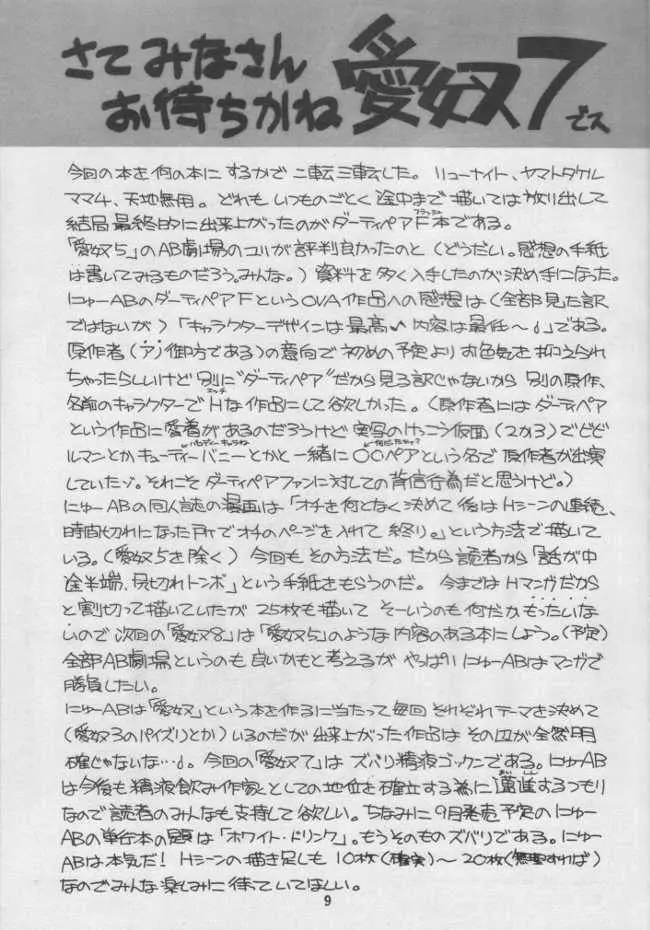 さてみなさん
お待ちかね 愛奴7でス
今回の本を何の本にするかで二転三転した。リューナイト、ヤマトタケル
ママ4、天地無用。どれもいつものごとく途中まで描いては放り出して
結局最終的に出来上がったのがダーティペアF本である。
フラッシュ
「愛奴5」のAB劇場のユリが評判良かったのと(どうだい。感想の手紙
は書いてみるものだろう。みんな。)資料を多く入手したのが決め手になった。
にゅーABのダーティペアFというOVA作品への感想は(全部見た訳
ではないが)「キャラクターデザインは最高♪内容は最低〜」である。
原作者(ア)御方である)の意向で初めの予定よりお色気を抑えられ
ちゃったらしいけど別に"ダーティペア"だから見る訳じゃないから別の原作、
名前のキャラクターでHな作品にして欲しかった。(原作者にはダーティペア
エッチ
という作品に愛着があるのだろうけど実写のけっこう仮面(2か3)でビビ
ルマンとかキューティーバニーとかと一緒に〇〇ペアという名で原作者が出演
していたゾ。それこそダーティペアファンに対しての背信行為だと思うけど。)
にゅーABの同人誌の漫画は「オチを何となく決めて後はHシーンの連続、
時間切れになった所でオチのページを入れて終り。」という方法で描いて
いる。(愛奴5を除く)今回もその方法だ。だから読者から「話が中
途半端、尻切れトンボ」という手紙をもらうのだ。今まではHマンガだから
と割切って描いていたが25枚も描いてそーいうのも何だかもったいな
いので次回の「愛奴8」は「愛奴5」のような内容のある本にしよう。(予定)
全部AB劇場というのも良いかもと考えるがやっぱりにゅーABはマンガで
勝負したい。
にゅーABは「愛奴」という本を作るに当たって毎回それぞれテーマを決めて
(愛奴3のパイズリとか)いるのだが出来上がった作品はその辺が全然明
確じゃないな…。今回の「愛奴7」はズバリ精液ゴックンである。にゅーAB
は今後も精液飲み作家としての地位を確立する為に邁進するつもり
まいしん
なので読者のみんなも支持して欲しい。ちなみに9月発売予定のにゅー
ABの単行本の題は「ホワイト・ドリンク」。もうそのものズバリである。にゅー
ABは本気だ!Hシーンの描き足しも10枚(確実)〜20枚(無理すれば)
なのでみんな楽しみに待っていてほしい。
9